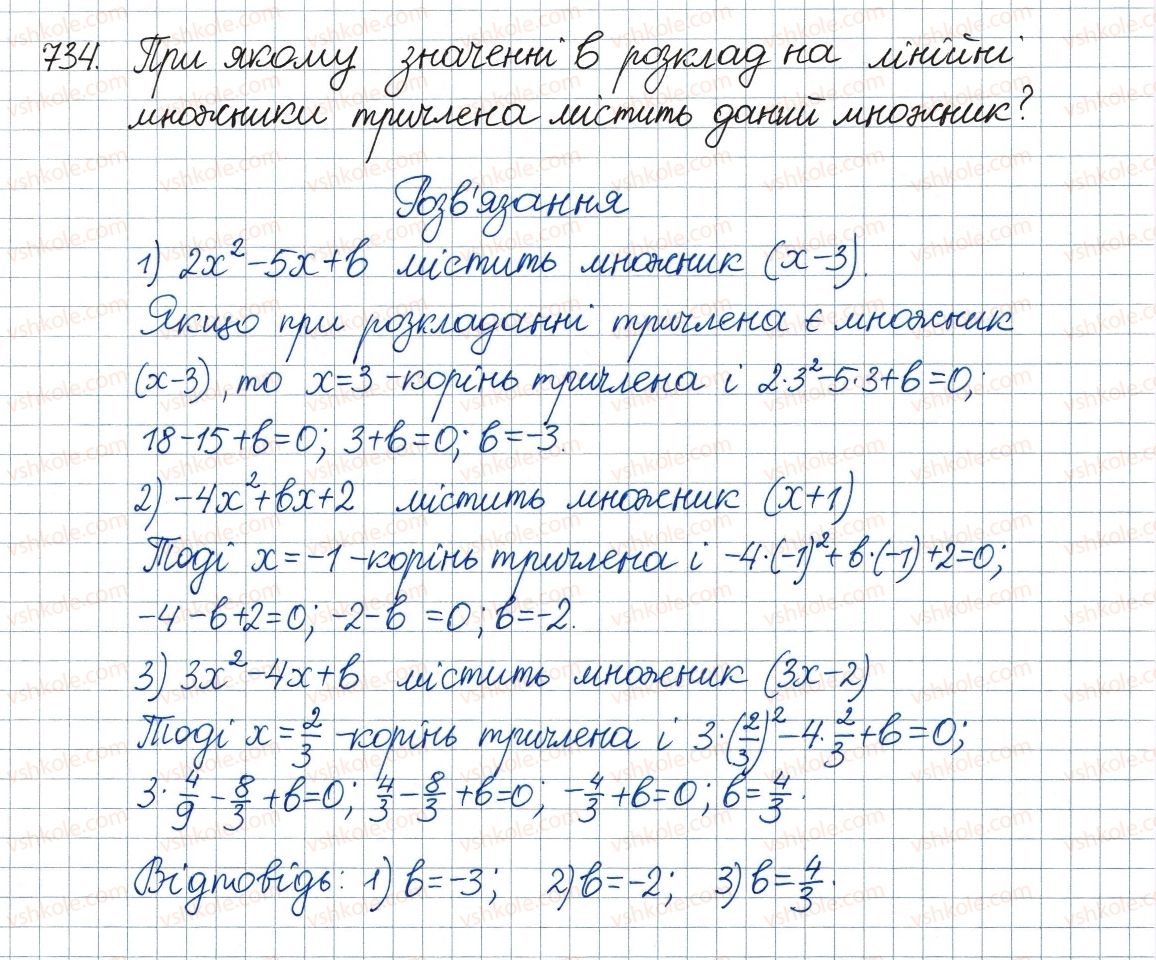 734. При якому значенні b розклад на лінійні
множники тричлена містить даний множник?
Розв'язання
1) 2x² - 5x + b містить множник (x - 3).
Якщо при розкладанні тричлена є множник
(x - 3), то x = 3 - корінь тричлена і 2·3² - 5·3 + b = 0;
18 - 15 + b = 0; 3 + b = 0; b = -3.
2) -4x² + bx + 2 містить множник (x + 1)
Тоді x = -1 - корінь тричлена і -4·(-1)² + b·(-1) + 2 = 0;
-4 - b + 2 = 0; -2 - b = 0; b = -2.
3) 3x² - 4x + b містить множник (3x - 2)
Тоді x = 2/3 - корінь тричлена і 3·(2/3)² - 4·2/3 + b = 0;
3·4/9 - 8/3 + b = 0; 4/3 - 8/3 + b = 0; -4/3 + b = 0; b = 4/3.
Відповідь: 1) b = -3; 2) b = -2; 3) b = 4/3.